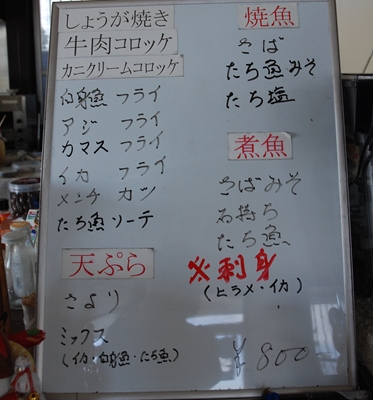 しょうが焼き
牛肉コロッケ
カニクリームコロッケ
白身魚 フライ
アジ フライ
カマス フライ
イカ フライ
メンチ カツ
たち魚 ソーテ
天ぷら
さより
ミックス
(イカ・白身魚・たち魚)
焼魚
さば
たち魚みそ
たち塩
煮魚
さばみそ
石持ち
たち魚
※刺身
(ヒラメ・イカ)
¥800